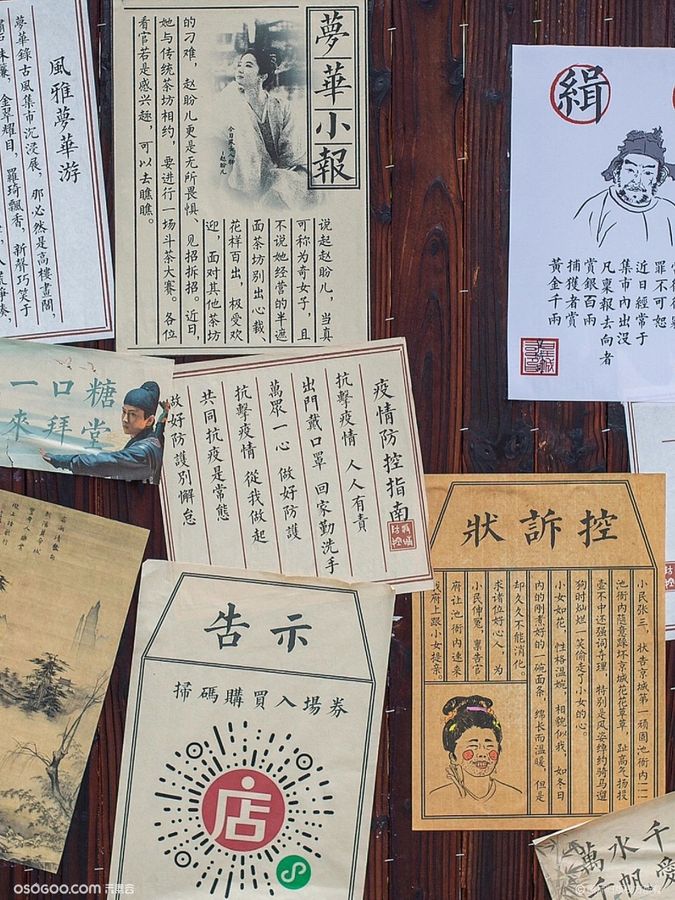 風雅夢華游
夢華錄古風集市沉浸展，那必然是高樓畫閣，
珠簾，金翠耀目，羅琦飄香，新聲巧笑于
夢華小報
说起赵盼儿，当真
可称为奇女子，且
不说她经营的半遮
面茶坊别出心裁，
花样百出，极受欢
迎，面对其他茶坊
的刁难，赵盼儿更是无所畏惧，见招拆招。近日，
她与传统茶坊相约，要进行一场斗茶大赛。各位
看官若是感兴趣，可以去瞧瞧。
緝
罪不可恕
近日經常于
集市內出沒
凡稟报去向者
賞银百兩
捕獲者賞
黃金千兩
一口糖
來拜堂
疫情防控指南
抗擊疫情 人人有責
出門戴口罩 回家勤洗手
萬眾一心 做好防護
抗擊疫情 從我做起
共同抗疫是常態
做好防護別懈怠
控訴狀
小民张三，状告京城第一顽固池衙内一一
池衙内随意踩坏京城花花草草，趾高气扬投
壶不中还强词夺理，特别是风姿绰约骑马遛
狗时灿烂一笑偷走了小女的心。
小女如花，性格温婉，相貌似我，如冬日
内的刚煮好的一碗面条，绵长而温暖，但是
却久久不能消化。
求诸位好心人，为
小民伸冤，禀告官
府让池衙内速来
我府上跟小女提亲。
告示
掃碼購買入場券
店
千
水
千帆
萬
愛
osogoo.com